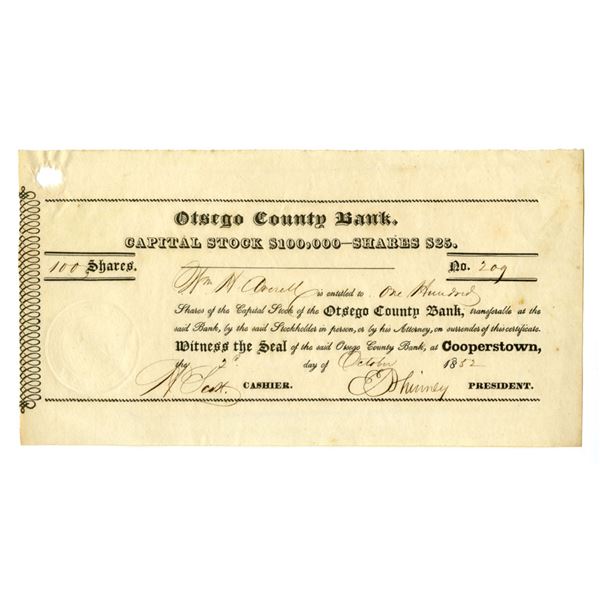 Otsego County Bank.
CAPITAL STOCK $100,000—SHARES $25.
100 Shares.
No. 209
Wm H Averell is entitled to One Hundred
Shares of the Capital Stock of the Otsego County Bank, transferable at the
said Bank, by the said Stockholder in person, or by his Attorney, on surrender of this certificate.
Witness the Seal of the said Otsego County Bank, at Cooperstown,
the 2d day of October 1852
H Scott. CASHIER. E Phinney PRESIDENT.